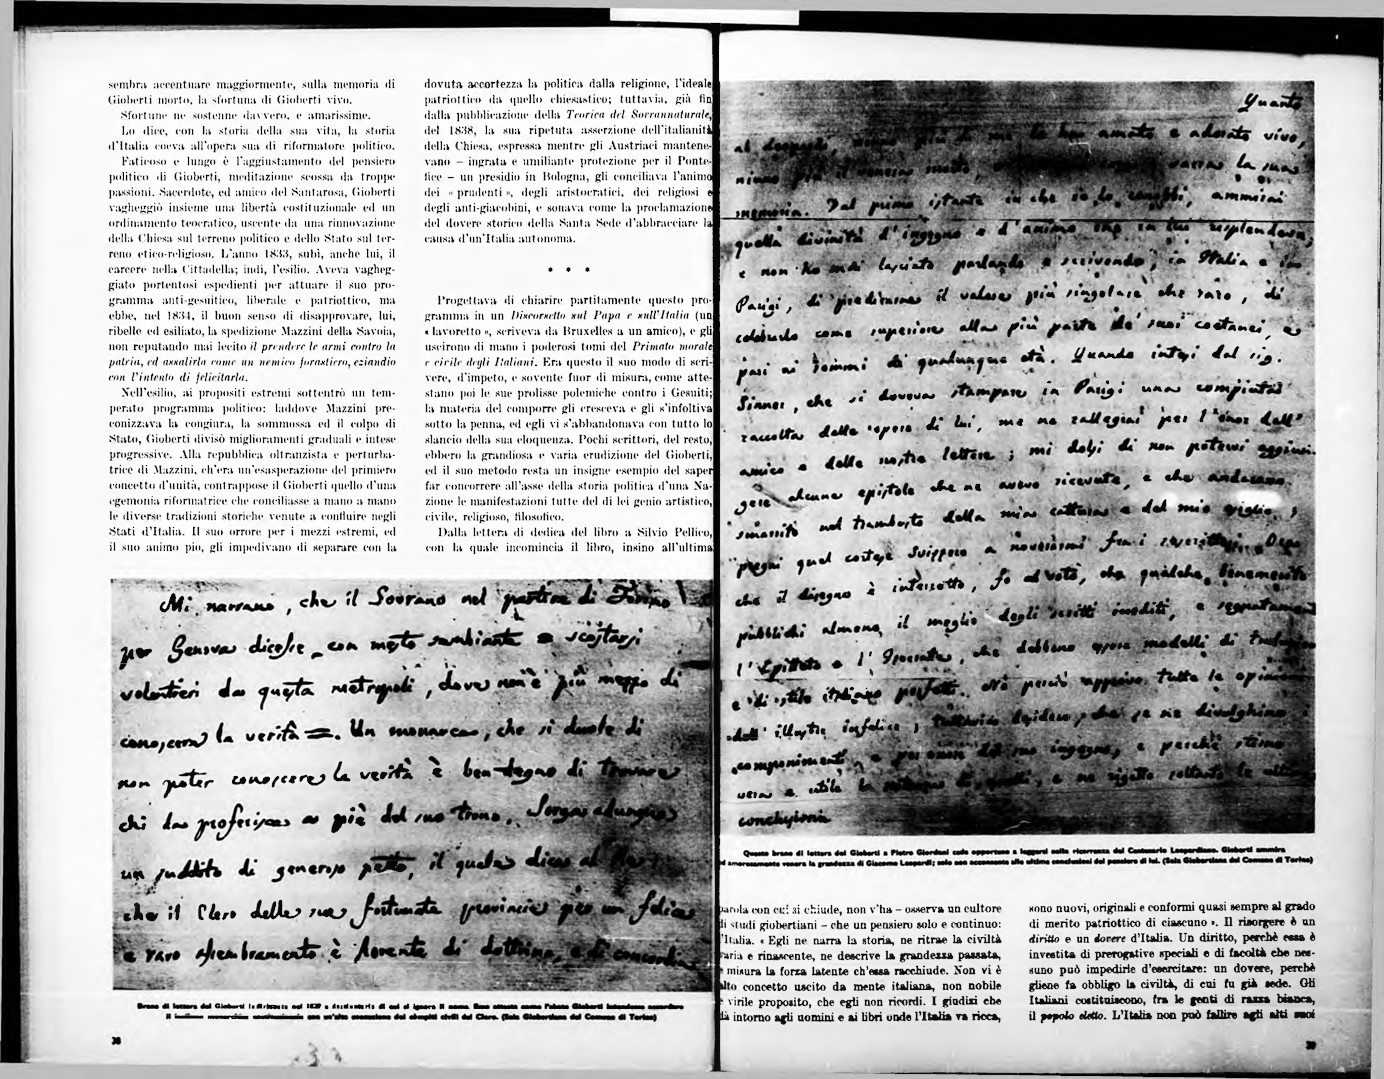 sembra accentuare maggiormente, sulla memoria di
Gioberti morto, la sfortuna di Gioberti vivo.
Sfortune ne sostenne davvero, e amarissime.
Lo dice, con la storia della sua vita, la storia
d'Italia coeva all'opera sua di riformatore politico.
Faticoso e lungo è l'aggiustamento del pensiero
politico di Gioberti, meditazione scossa da troppe
passioni. Sacerdote, ed amico del Santarosa, Gioberti
vagheggiò insieme una libertà costituzionale ed un
ordinamento teocratico, uscente da una rinnovazione
della Chiesa sul terreno politico e dello Stato sul ter-
reno etico-religioso. L'anno 1833, subì, anche lui, il
carcere nella Cittadella; indi, l'esilio. Aveva vagheg-
giato portentosi espedienti per attuare il suo pro-
gramma anti-gesuitico, liberale e patriottico, ma
ebbe, nel 1834, il buon senso di disapprovare, lui,
ribelle ed esiliato, la spedizione Mazzini della Savoia,
non reputando mai lecito il prendere le armi contro la
patria, ed assalirla come un nemico forastiero, eziandio
con l'intento di felicitarla.
Nell'esilio, ai propositi estremi sottentrò un tem-
perato programma politico: laddove Mazzini pre-
conizzava la congiura, la sommossa ed il colpo di
Stato, Gioberti divisò miglioramenti graduali e intese
progressive. Alla repubblica oltranzista e perturba-
trice di Mazzini, ch'era un'esasperazione del primiero
concetto d'unità, contrappose il Gioberti quello d'una
egemonia riformatrice che conciliasse a mano a mano
le diverse tradizioni storiche venute a confluire negli
Stati d'Italia. Il suo orrore per i mezzi estremi, ed
il suo animo pio, gli impedivano di separare con la
dovuta accortezza la politica dalla religione, l'ideale
patriottico da quello chiesastico; tuttavia, già fin
dalla pubblicazione della Teorica del Sovrannaturale,
del 1838, la sua ripetuta asserzione dell'italianità
della Chiesa, espressa mentre gli Austriaci mantene-
vano – ingrata e umiliante protezione per il Ponte-
fice – un presidio in Bologna, gli conciliava l'animo
dei « prudenti », degli aristocratici, dei religiosi e
degli anti-giacobini, e sonava come la proclamazione
del dovere storico della Santa Sede d'abbracciare la
causa d'un'Italia autonoma.
* * *
Progettava di chiarire partitamente questo pro-
gramma in un Discorsetto sul Papa e sull'Italia (un
« lavoretto », scriveva da Bruxelles a un amico), e gli
uscirono di mano i poderosi tomi del Primato morale
e civile degli Italiani. Era questo il suo modo di scri-
vere, d'impeto, e sovente fuor di misura, come atte-
stano poi le sue prolisse polemiche contro i Gesuiti;
la materia del comporre gli cresceva e gli s'infoltiva
sotto la penna, ed egli vi s'abbandonava con tutto lo
slancio della sua eloquenza. Pochi scrittori, del resto,
ebbero la grandiosa e varia erudizione del Gioberti,
ed il suo metodo resta un insigne esempio del saper
far concorrere all'asse della storia politica d'una Na-
zione le manifestazioni tutte del di lei genio artistico,
civile, religioso, filosofico.
Dalla lettera di dedica del libro a Silvio Pellico,
con la quale incomincia il libro, insino all'ultima
Mi narrano, che il Sovrano nel partire di Torino
per Genova dicesse con mesto sembiante = scostarsi
volontieri da questa metropoli, dove non è più mezzo di
conoscere la verità =. Un monarca, che si duole di
non poter conoscere la verità è ben degno di trovare
chi la proferisca a piè del suo trono. Sorga adunque
un suddito di generoso petto, il quale dica al Re
che il Clero delle sue fortunate provincie per un felice
e raro assembramento è fiorente di dottrina, e di concordia
Brano di lettera del Gioberti indirizzata nel 1837 a destinatario di cui si ignora il nome. Esso attesta come l'abate Gioberti intendesse accordare
(Sala Giobertiana del Comune di Torino)
38
Quanto
più di me lo ha amato e adorato vivo,
niuno più il venera morto, sacra la sua
memoria. Dal primo istante in che io lo conobbi, ammirai
quella divinità d'ingegno e d'animo che in lui risplendeva;
e non ho mai lasciato parlando e scrivendo, in Italia e in
Parigi, di predicarne il valore più singolare che raro, di
celebrarlo come superiore alla più parte de' suoi coetanei, e
pari ai sommi di qualunque età. Quando intesi dal sig.
Sinner, che si doveva stampare in Parigi una compiuta
raccolta delle opere di lui, me ne rallegrai per l'onor dell'
amico e delle nostre lettere; mi dolsi di non potervi aggiun-
gere alcune epistole che ne aveva ricevute, e che andarono
smarrite nel trambusto della mia cattura e del mio esiglio;
pregai quel cortese Svizzero a
che il disegno è interrotto, fo al voto, che qualche benemerito
pubblichi almeno il meglio degli scritti inediti, e segnatamente
l'Epitteto e l'Isocrate, che debbono essere modelli di traduzione
e di stile italiano perfetti. Nè perciò approvo tutte le opinioni
dell' illustre infelice; tuttavia desidero, che se ne divulghino i
componimenti, e per onore del suo ingegno, e perchè stimo
vera e utile la di quelli, e ne rigetto soltanto le ultime
conclusioni
Questo brano di lettera del Gioberti a Pietro Giordani cade opportuno a leggersi nella ricorrenza del Centenario Leopardiano. Gioberti ammira
ed amorosamente venera la grandezza di Giacomo Leopardi; solo non acconsente alle ultime conclusioni del pensiero di lui. (Sala Giobertiana del Comune di Torino)
parola con cui si chiude, non v'ha – osserva un cultore
di studi giobertiani – che un pensiero solo e continuo:
l'Italia. « Egli ne narra la storia, ne ritrae la civiltà
varia e rinascente, ne descrive la grandezza passata,
e misura la forza latente ch'essa racchiude. Non vi è
alto concetto uscito da mente italiana, non nobile
e virile proposito, che egli non ricordi. I giudizi che
dà intorno agli uomini e ai libri onde l'Italia va ricca,
sono nuovi, originali e conformi quasi sempre al grado
di merito patriottico di ciascuno ». Il risorgere è un
diritto e un dovere d'Italia. Un diritto, perchè essa è
investita di prerogative speciali e di facoltà che nes-
suno può impedirle d'esercitare: un dovere, perchè
gliene fa obbligo la civiltà, di cui fu già sede. Gli
Italiani costituiscono, fra le genti di razza bianca,
il popolo eletto. L'Italia non può fallire agli alti suoi
39